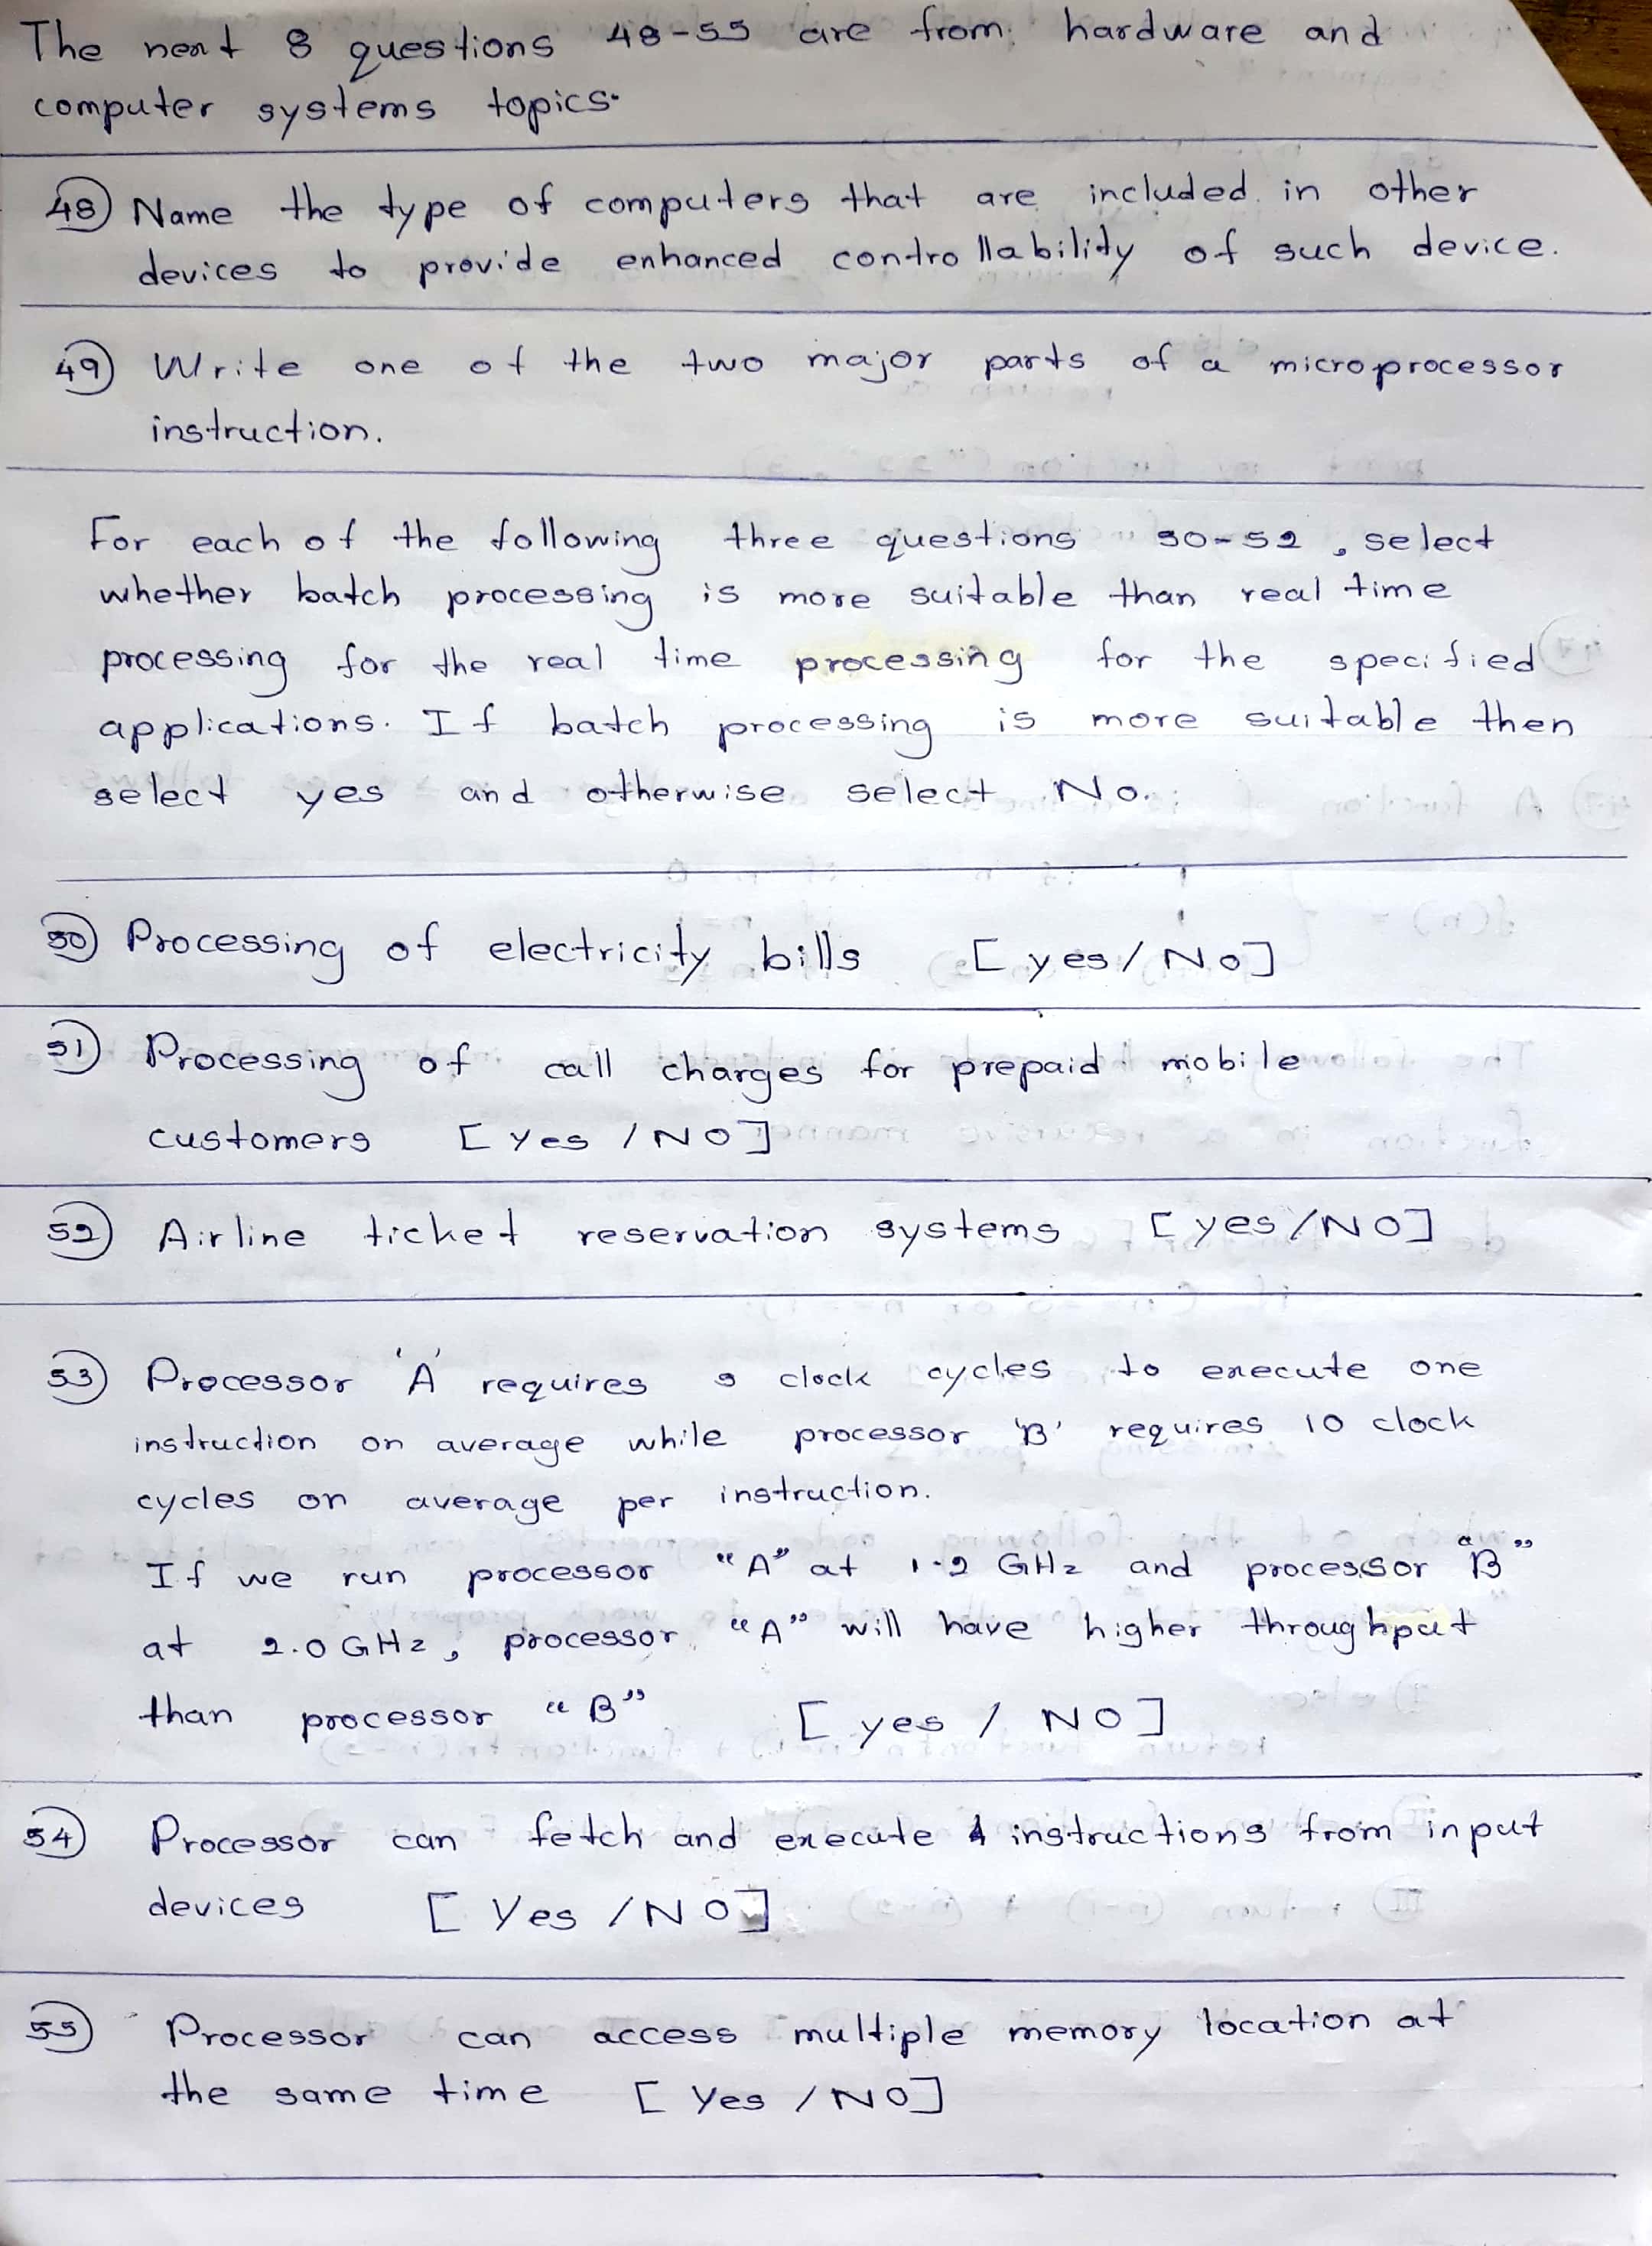 The next 8 questions 48-55 are from hardware and
computer systems topics.
48 Name the type of computers that are included in other
devices to provide enhanced controllability of such device.
49 Write one of the two major parts of a microprocessor
instruction.
For each of the following three questions 50-52, select
whether batch processing is more suitable than real time
processing for the real time processing for the specified
applications. If batch processing is more suitable then
select yes and otherwise select No.
50 Processing of electricity bills [yes/No]
51 Processing of call charges for prepaid mobile
customers [Yes/NO]
52 Airline ticket reservation systems [yes/NO]
53 Processor 'A' requires 5 clock cycles to execute one
instruction on average while processor 'B' requires 10 clock
cycles on average per instruction.
If we run processor "A" at 1.2 GHz and processor "B"
at 2.0 GHz, processor "A" will have higher throughput
than processor "B" [yes / NO]
54 Processor can fetch and execute instructions from input
devices [Yes/NO]
55 Processor can access multiple memory location at
the same time [Yes/NO]